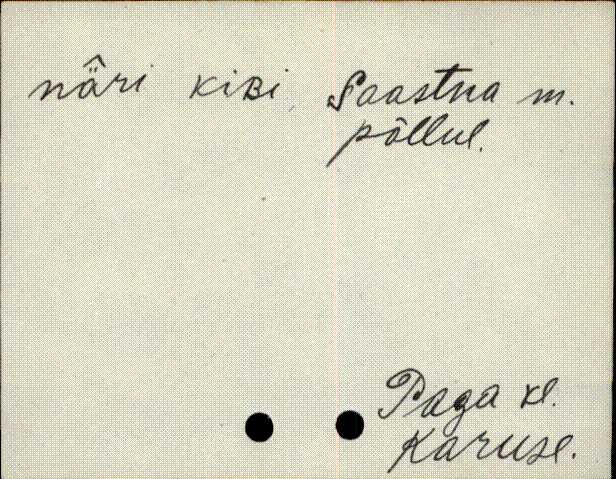 nä̂ri kiʙi, Saastna m.
põllul.
Paga kl.
Karuse.